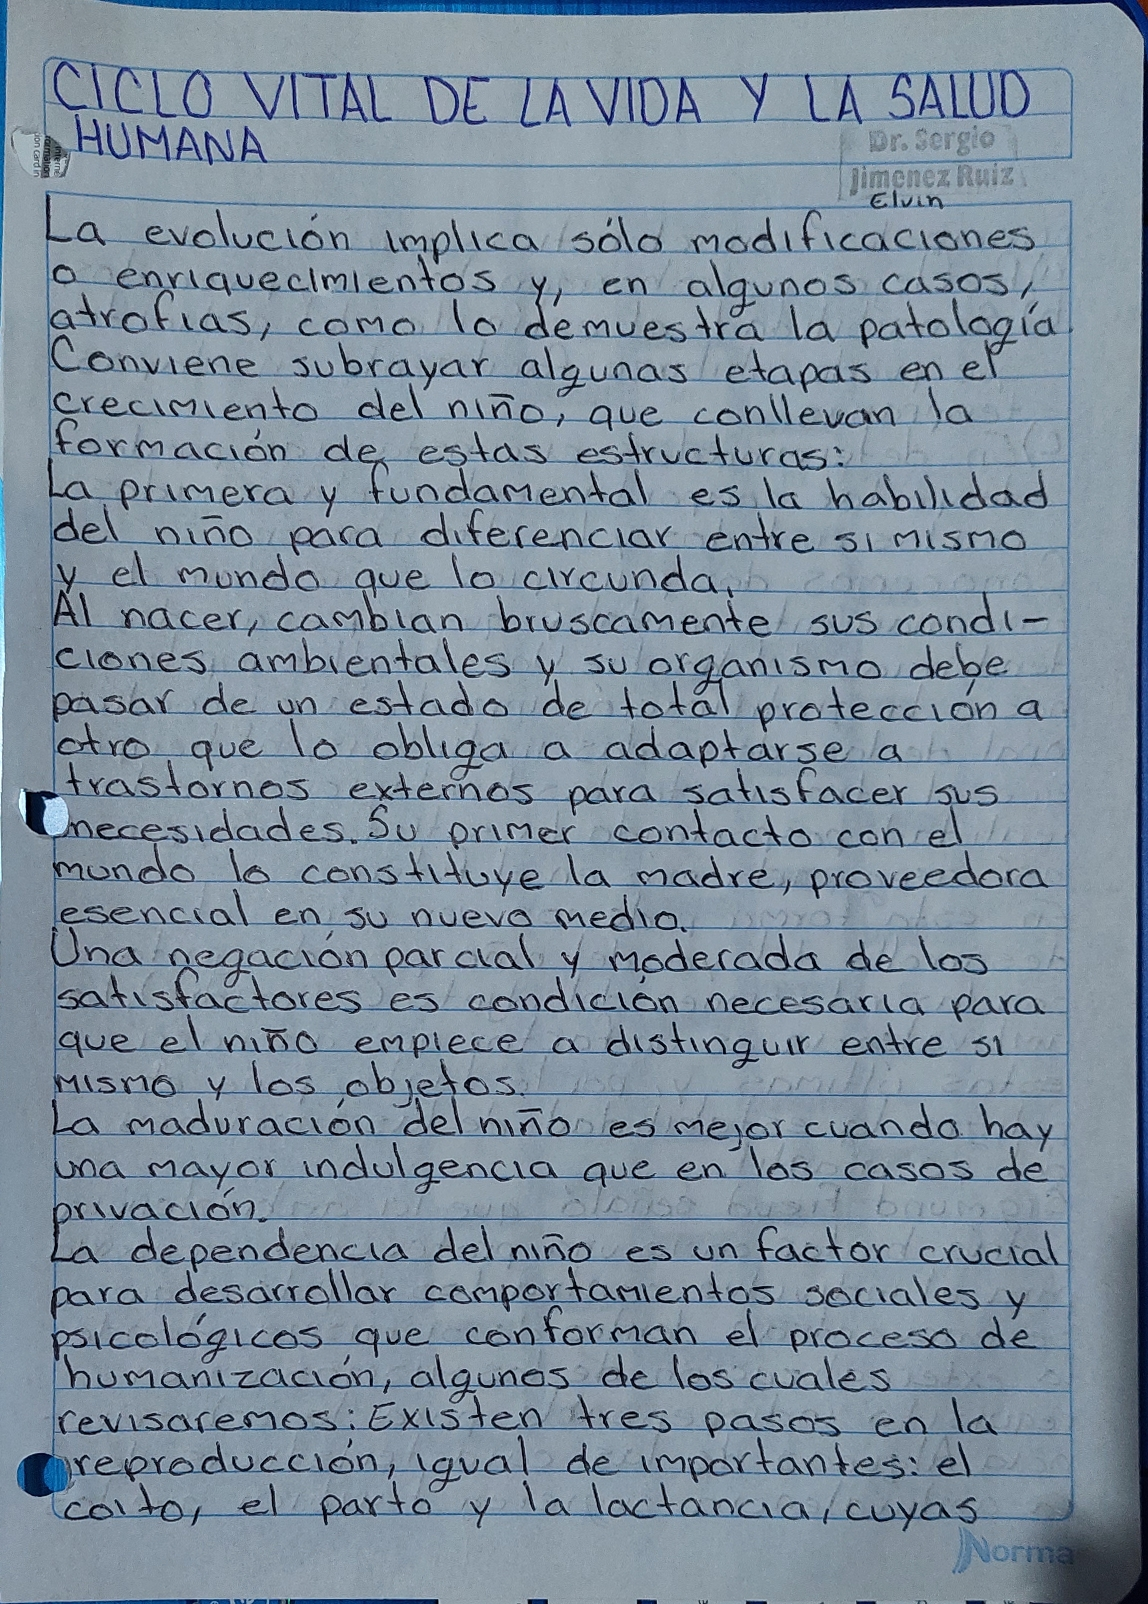 CICLO VITAL DE LA VIDA Y LA SALUD
HUMANA
Dr. Sergio
Jimenez Ruiz
Elvin
La evolución implica sólo modificaciones
o enriquecimientos y, en algunos casos,
atrofias, como lo demuestra la patología
Conviene subrayar algunas etapas en el
crecimiento del niño, que conllevan la
formación de estas estructuras:
La primera y fundamental es la habilidad
del niño para diferenciar entre si mismo
y el mundo que lo circunda.
Al nacer, cambian bruscamente sus condi-
ciones ambientales y su organismo debe
pasar de un estado de total protección a
otro que lo obliga a adaptarse a
trastornos externos para satisfacer sus
necesidades. Su primer contacto con el
mundo lo constituye la madre, proveedora
esencial en su nuevo medio.
Una negación parcial y moderada de los
satisfactores es condición necesaria para
que el niño empiece a distinguir entre si
mismo y los objetos.
La maduración del niño es mejor cuando hay
una mayor indulgencia que en los casos de
privación.
La dependencia del niño es un factor crucial
para desarrollar comportamientos sociales y
psicológicos que conforman el proceso de
humanización, algunos de los cuales
revisaremos: Existen tres pasos en la
reproducción, igual de importantes: el
coito, el parto y la lactancia, cuyas
Norma